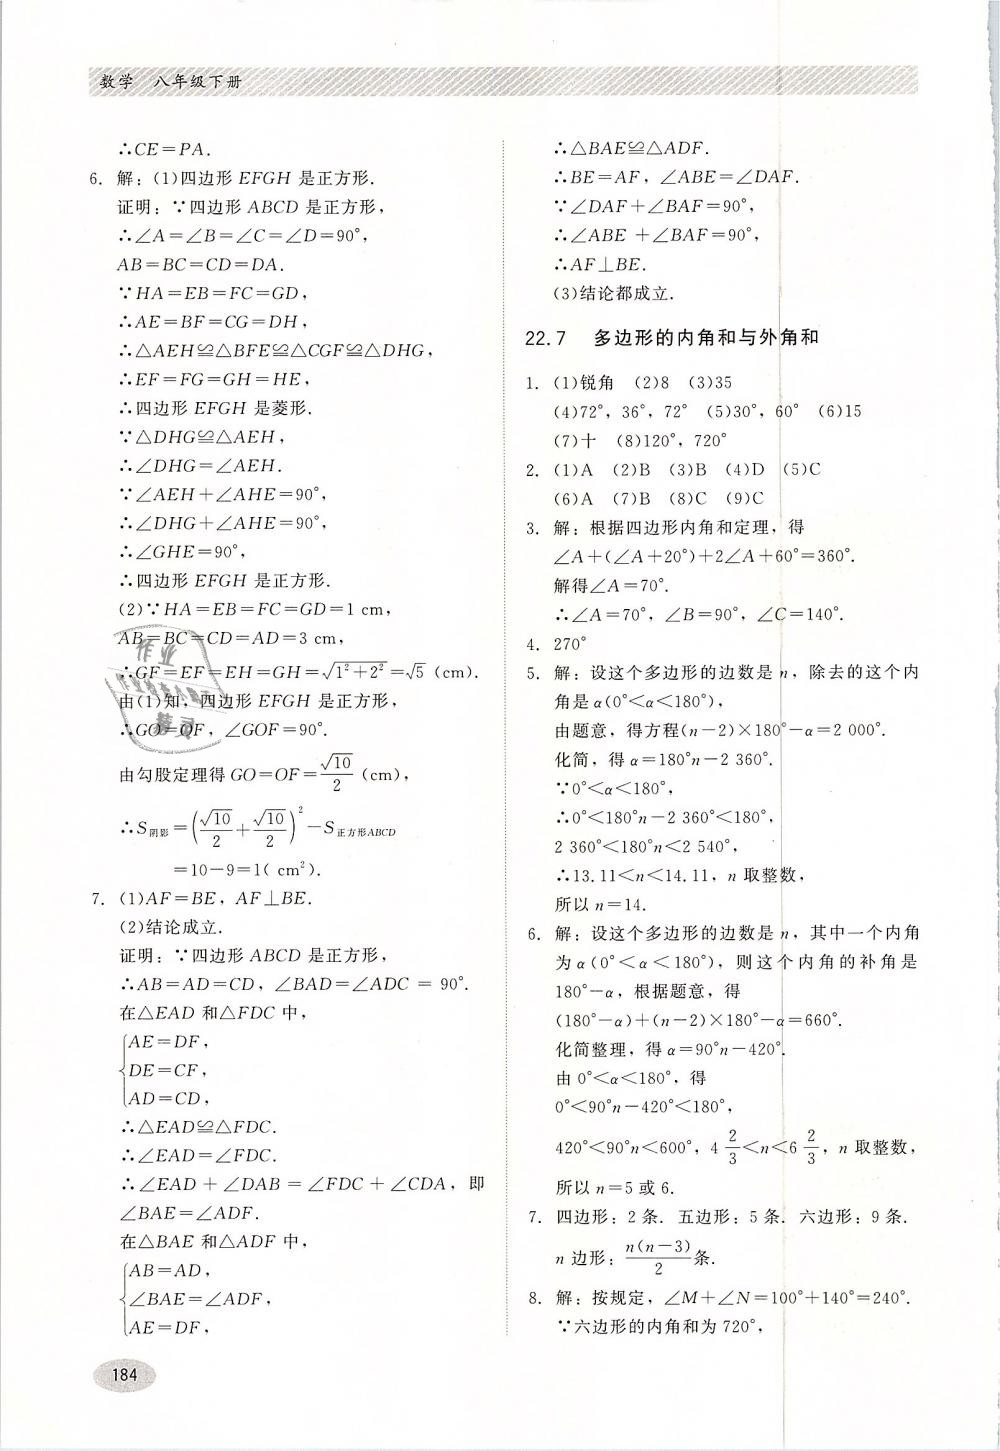 数学 八年级下册
∴CE=PA.
6. 解：(1)四边形 EFGH 是正方形.
证明：∵四边形 ABCD 是正方形，
∴∠A=∠B=∠C=∠D=90°，
AB=BC=CD=DA.
∵HA=EB=FC=GD，
∴AE=BF=CG=DH，
∴△AEH≌△BFE≌△CGF≌△DHG，
∴EF=FG=GH=HE，
∴四边形 EFGH 是菱形.
∵△DHG≌△AEH，
∴∠DHG=∠AEH.
∵∠AEH+∠AHE=90°，
∴∠DHG+∠AHE=90°，
∴∠GHE=90°，
∴四边形 EFGH 是正方形.
(2)∵HA=EB=FC=GD=1 cm，
AB=BC=CD=AD=3 cm，
∴GF=EF=EH=GH=√(1²+2²)=√5 (cm).
由(1)知，四边形 EFGH 是正方形，
∴GO=OF，∠GOF=90°.
由勾股定理得 GO=OF=√10/2 (cm)，
∴S阴影=(√10/2+√10/2)²-S正方形ABCD
=10-9=1( cm²).
7. (1)AF=BE，AF⊥BE.
(2)结论成立.
证明：∵四边形 ABCD 是正方形，
∴AB=AD=CD，∠BAD=∠ADC = 90°.
在△EAD 和△FDC 中，
{AE=DF，
DE=CF，
AD=CD，
∴△EAD≌△FDC.
∴∠EAD=∠FDC.
∴∠EAD+∠DAB=∠FDC+∠CDA，即
∠BAE=∠ADF.
在△BAE 和△ADF 中，
{AB=AD，
∠BAE=∠ADF，
AE=DF，
∴△BAE≌△ADF.
∴BE=AF，∠ABE=∠DAF.
∵∠DAF+∠BAF=90°，
∴∠ABE +∠BAF=90°，
∴AF⊥BE.
(3)结论都成立.
22.7 多边形的内角和与外角和
1. (1)锐角 (2)8 (3)35
(4)72°，36°，72° (5)30°，60° (6)15
(7)十 (8)120°，720°
2. (1)A (2)B (3)B (4)D (5)C
(6)A (7)B (8)C (9)C
3. 解：根据四边形内角和定理，得
∠A+(∠A+20°)+2∠A+60°=360°.
解得∠A=70°.
∴∠A=70°，∠B=90°，∠C=140°.
4. 270°
5. 解：设这个多边形的边数是 n，除去的这个内
角是 α(0°<α<180°)，
由题意，得方程(n-2)×180°-α=2 000°.
化简，得 α=180°n-2 360°.
∵0°<α<180°，
∴0°<180°n-2 360°<180°，
2 360°<180°n<2 540°，
∴13.11<n<14.11，n 取整数，
所以 n=14.
6. 解：设这个多边形的边数是 n，其中一个内角
为 α(0°<α<180°)，则这个内角的补角是
180°-α，根据题意，得
(180°-α)+(n-2)×180°-α=660°.
化简整理，得 α=90°n-420°.
由 0°<α<180°，得
0°<90°n-420°<180°，
420°<90°n<600°，4 2/3<n<6 2/3，n 取整数，
所以 n=5 或 6.
7. 四边形：2 条. 五边形：5 条. 六边形：9 条.
n 边形：n(n-3)/2条.
8. 解：按规定，∠M+∠N=100°+140°=240°.
∵六边形的内角和为 720°，
184